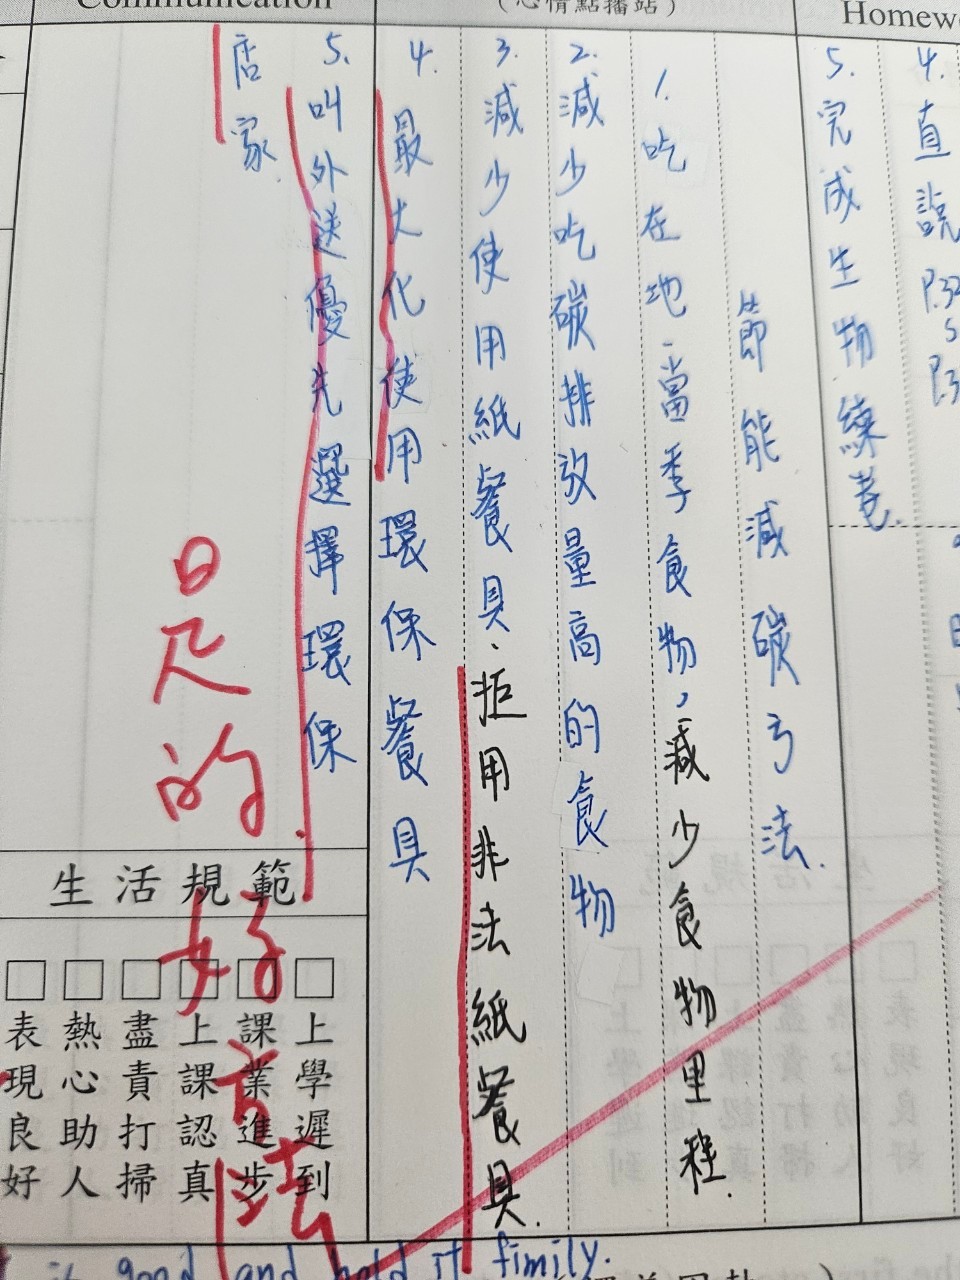 Communication
(心情點播站)
4.直說
P.32
5.完成生物練卷.
節能減碳方法.
1.吃在地、當季食物,減少食物里程.
2.減少吃碳排放量高的食物
3.減少使用紙餐具、拒用非法紙餐具.
4.最大化使用環保餐具
5.叫外送優先選擇環保
店家
是的
好方法
生活規範
□上學遲到
□課業進步
□上課認真
□盡責打掃
□熱心助人
□表現良好
good and hold it fimily.